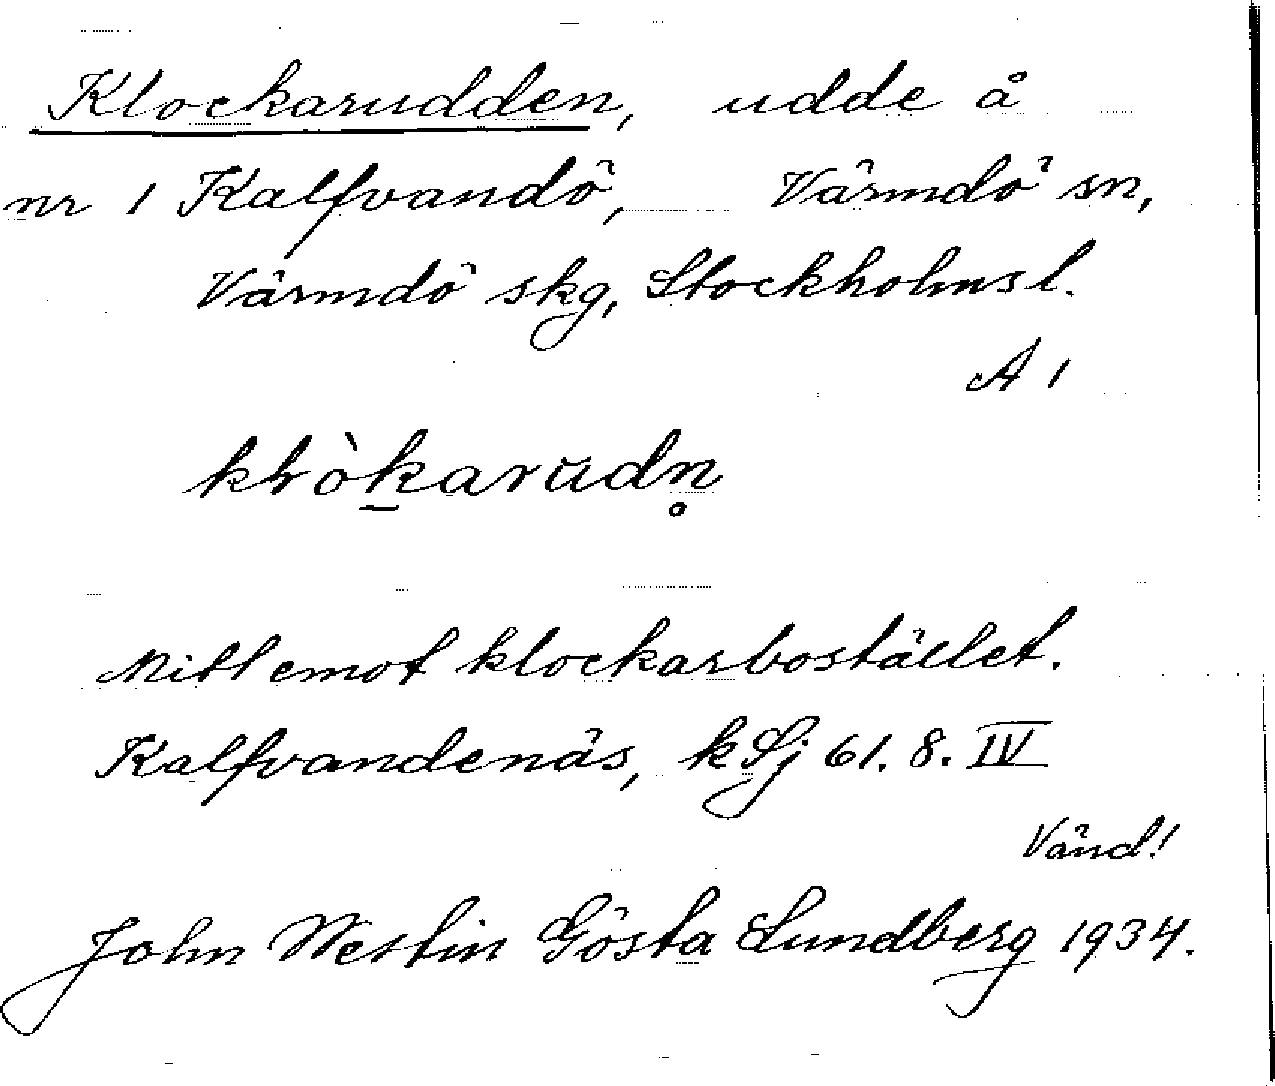 Klockarudden, udde å
nr 1 Kalfvandö, Värmdö sn,
Värmdö skg, Stockholmsl.
A 1
Mitt emot klockarbostället.
Kalfvandenäs, k Sj 61. 8. IV
Vänd!
John Westin Gösta Lundberg 1934.